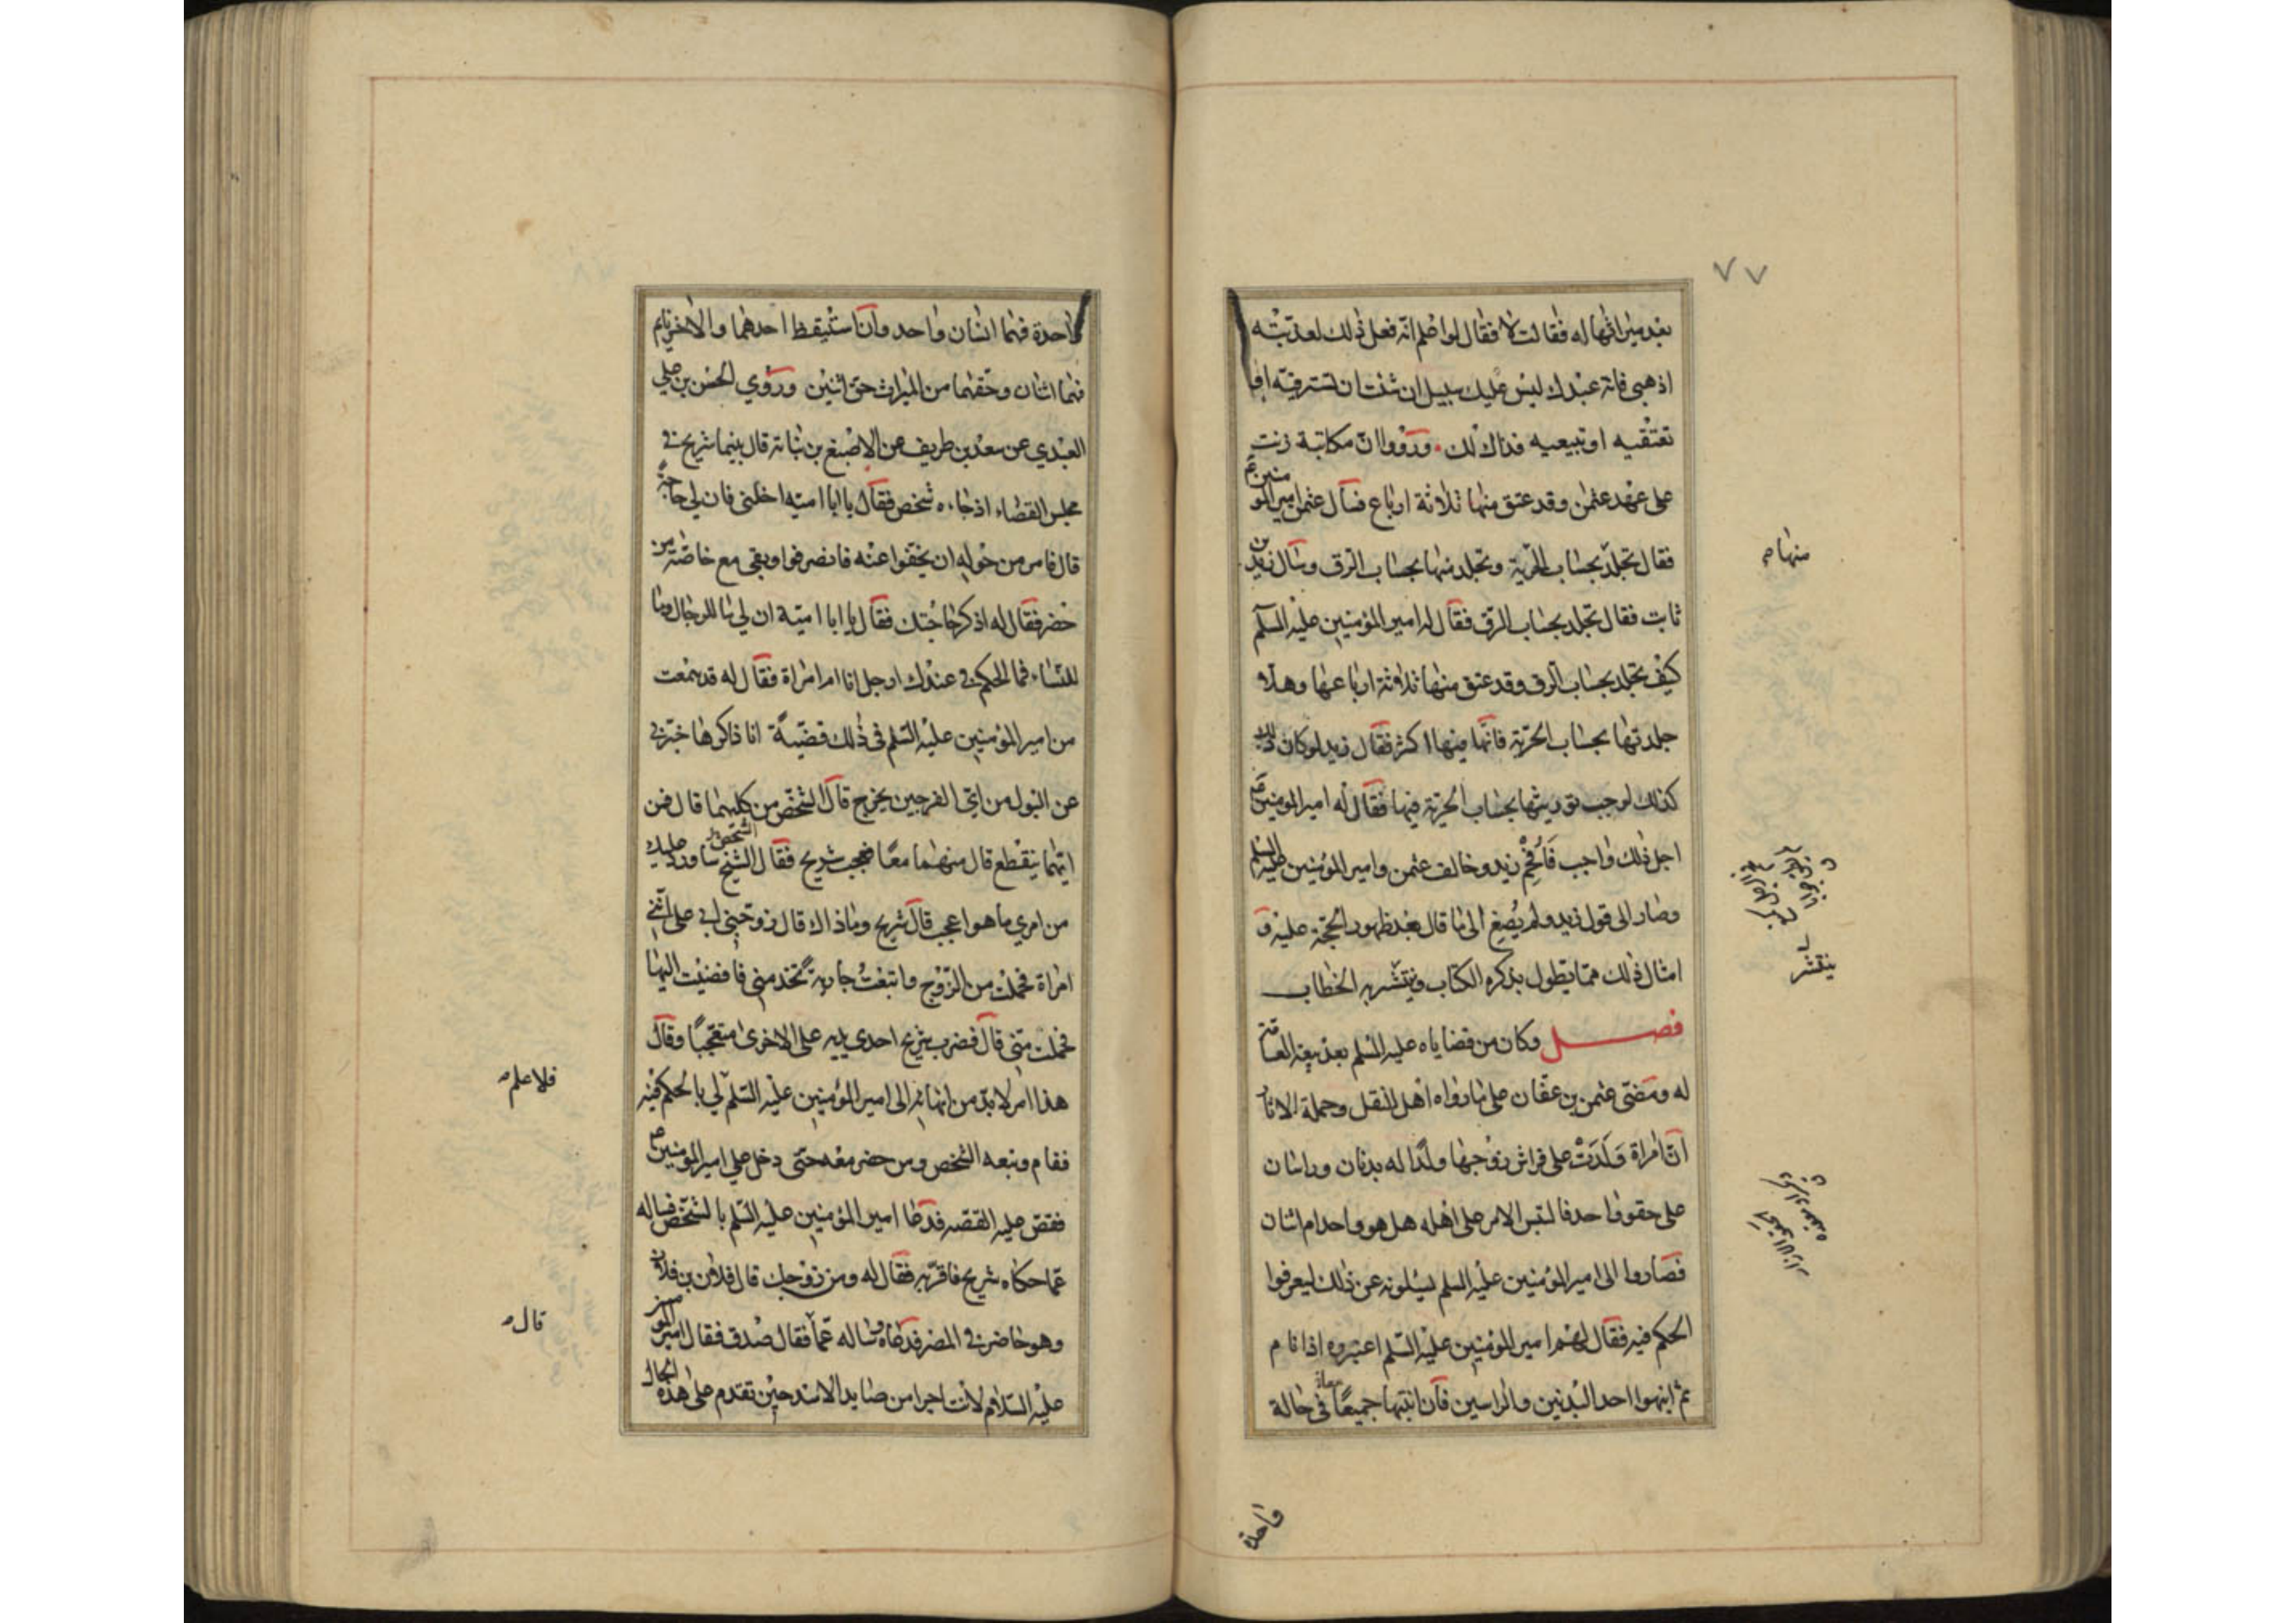 ٧٧
بعد ميراثها له فقالت لا فقال لو اعلم انه فعل ذلك لعذبته
اذهبي فانه عبدك ليس له عليك سبيل ان شئت ان تسترقيه او
تعتقيه او تبيعيه فذاك لك وروَوا ان مكاتبة زنت
على عهد عثمن وقد عتق منها ثلاثة ارباع فسأل عثمن امير المومنين ع
فقال تجلد بحساب الحرية وتجلد منها بحساب الرق وسال زيد بن
ثابت فقال تجلد بحساب الرق فقال له امير المؤمنين عليه السلم
كيف تجلد بحساب الرق وقد عتق منها ثلاثة ارباعها وهلا
جلدتها بحساب الحرية فانها فيها اكثر فقال زيد لو كان ذلك
كذلك لوجب توريثها بحساب الحرية فيها فقال له امير المومنين ع
اجل ذلك واجب فأفحم زيد وخالف عثمن وامير المؤمنين عليه السلم
وصار الى قول زيد ولم يصغ الى ما قال بعد ظهور الحجة عليه و
امثال ذلك مما يطول بذكره الكتاب وينتشر به الخطاب
فصل وكان من قضاياه عليه السلم بعد بيعة العامة
له ومضى عثمن بن عفان على ما رواه اهل النقل وحملة الاثار
ان امراة ولدت على فراش زوجها ولدا له بدنان وراسان
على حقو واحد فالتبس الامر على اهله هل هو واحد ام اثنان
فصاروا الى امير المؤمنين عليه السلم يسئلونه عن ذلك ليعرفوا
الحكم فيه فقال لهم امير المؤمنين عليه السلم اعتبروه اذا نام
ثم انبهوا احد البدنين والراسين فان انتبها جميعا معا في حالة
منها
ينتشر
واحدة
واحدة فهما انسان واحد وان استيقظ احدهما والاخر نايم
فهما اثنان وحقهما من الميراث حق اثنين وروي الحسن بن علي
العبدي عن سعد بن طريف عن الاصبغ بن نباته قال بينما شريح في
مجلس القضاء اذ جاءه شخص فقال يا ابا امية اخلني فان لي حاجة
قال فامر من حوله ان يخفوا عنه فانصرفوا وبقي مع خاصة من
حضر فقال له اذكر حاجتك فقال يا ابا امية ان لي ما للرجال وما
للنساء فما الحكم في عندك ارجل انا ام امراة فقال له قد سمعت
من امير المؤمنين عليه السلم في ذلك قضية انا ذاكرها خبرني
عن البول من اي الفرجين يخرج قال الشخص من كليهما قال فمن
ايهما ينقطع قال منهما معا فعجب شريح فقال الشيخ الشخص ساورد عليك
من امري ما هو اعجب قال شريح وما ذاك قال زوجني ابي على انني
امراة فحملت من الزوج وابتعت جارية تخدمني فافضيت اليها
فحملت مني قال فضرب شريح احدى يديه على الاخرى متعجبا وقال
هذا امر لا بد من انهائه الى امير المؤمنين عليه السلم لي بالحكم فيه
فقام وتبعه الشخص ومن حضر معه حتى دخل على امير المؤمنين ع
فقص عليه القصه فدعا امير المؤمنين عليه السلم بالشخص فساله
عما حكاه شريح فاقر به فقال له ومن زوجك قال فلان بن فلان
وهو حاضر في المصر فدعاه وساله عما فقال صدق فقال امير المومنين
عليه السلام لانت اجرا من صايد الاسد حين تقدم على هذه الحال
فلا علم
قال